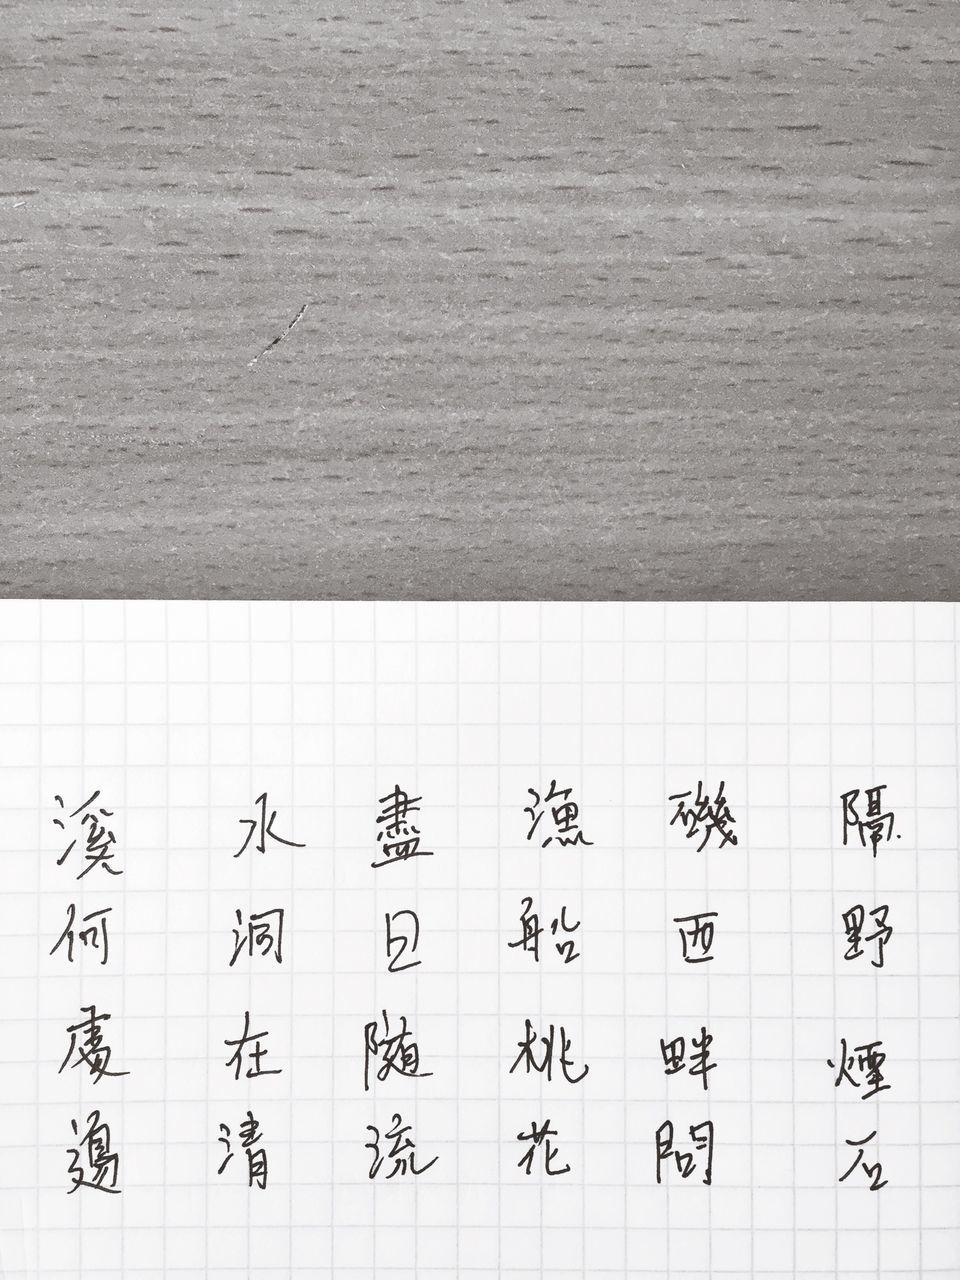 隔野煙石
磯西畔問
漁船桃花
盡日隨流
水洞在清
溪何處邊